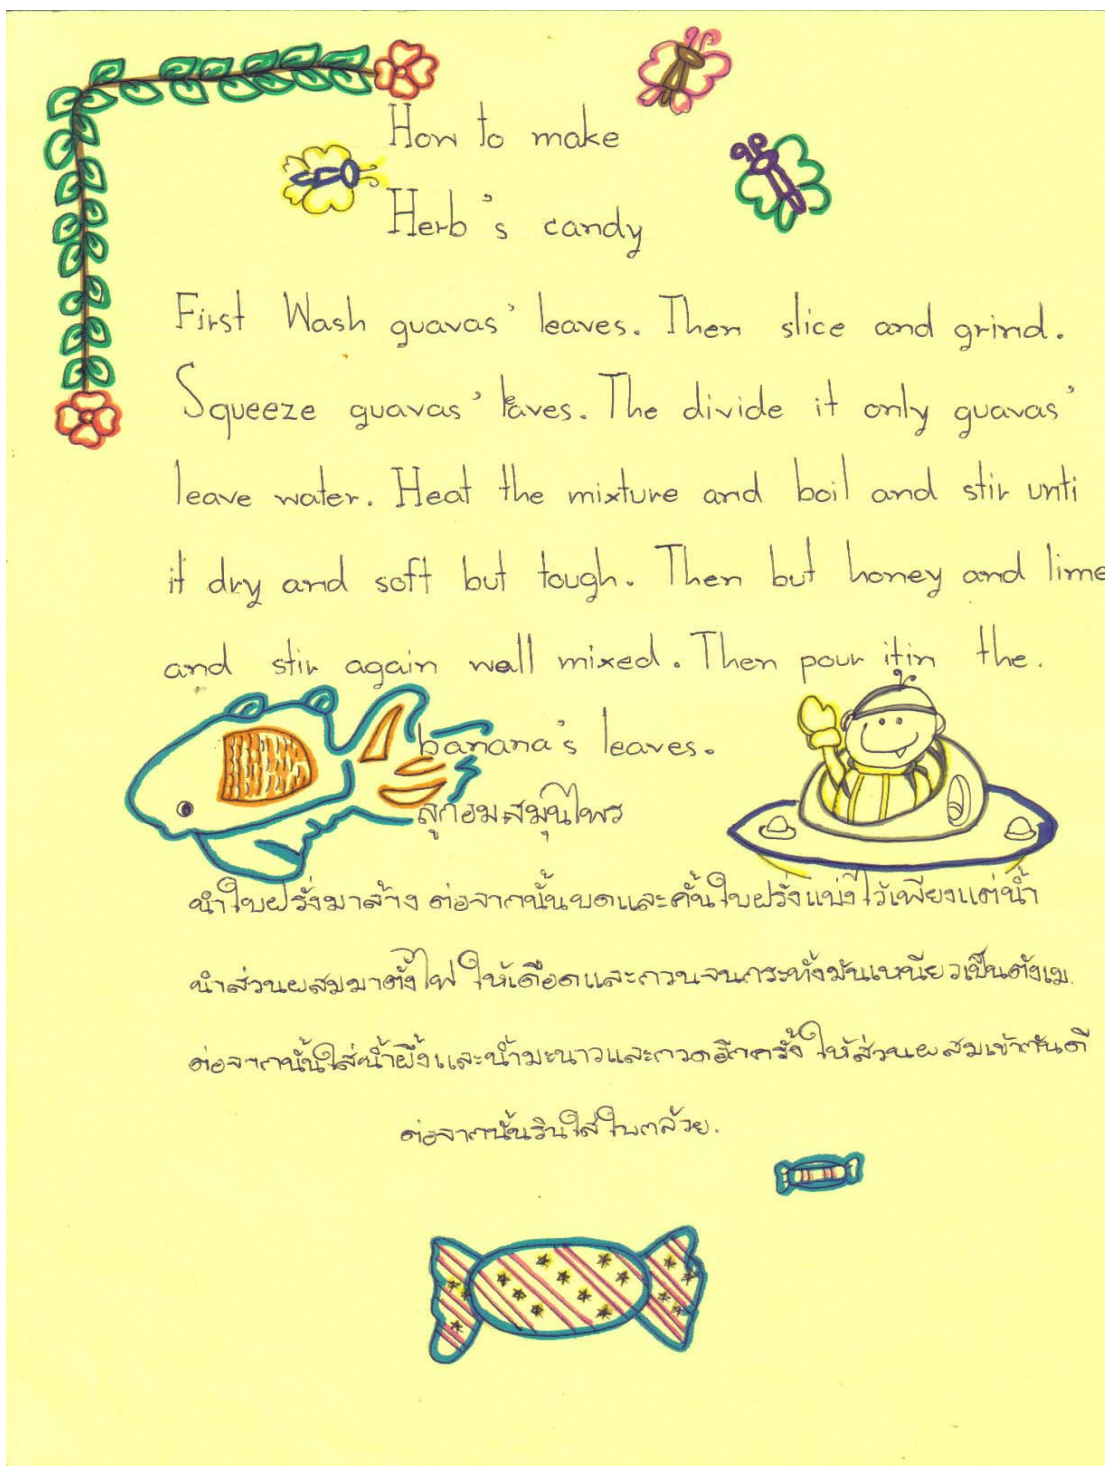 How to make
Herb's candy
First Wash guavas' leaves. Then slice and grind.
Squeeze guavas' leaves. The divide it only guavas'
leave water. Heat the mixture and boil and stir unti
it dry and soft but tough. Then but honey and lime
and stir again well mixed. Then pour itin the.
banana's leaves.
ลูกอมสมุนไพร
นำใบฝรั่งมาล้าง ต่อจากนั้นบดและคั้นใบฝรั่งแบ่งไว้เพียงแต่น้ำ
นำส่วนผสมมาตั้งไฟ ให้เดือดและกวนจนกระทั่งมันเหนียวเป็นตังเม.
ต่อจากนั้นใส่น้ำผึ้งและน้ำมะนาวและกวดอีกครั้ง ให้ส่วนผสมเข้ากันดี
ต่อจากนั้นรินใส่ใบกล้วย.